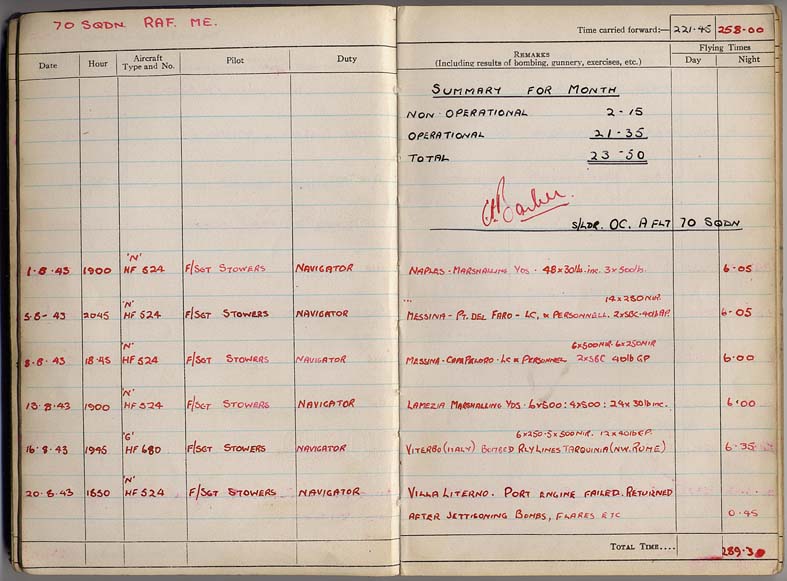 70 SQDN. RAF. ME.
Time carried forward:— 221·45 258·00
Date Hour Aircraft Type and No. Pilot Duty REMARKS (Including results of bombing, gunnery, exercises, etc.) Flying Times Day Night
SUMMARY FOR MONTH
NON OPERATIONAL 2-15
OPERATIONAL 21-35
TOTAL 23-50
S/LDR. OC. A FLT 70 SQDN
'N'
1·8·43 1900 HF 524 F/SGT STOWERS NAVIGATOR NAPLES - MARSHALLING YDS - 48x30lb. inc. 3x500lb. 6·05
'N' 14 x 250 NIR.
5·8·43 2045 HF 524 F/SGT STOWERS NAVIGATOR MESSINA - PT. DEL FARO - LC, & PERSONNELL. 2xSBC·40lb GP. 6-05
'N' 6x500NIR· 6x250NIR
8·8·43 18·45 HF 524 F/SGT STOWERS NAVIGATOR MESSINA - - LC & PERSONNEL 2xSBC 40lb GP 6·00
'N'
13·8·43 1900 HF 524 F/SGT STOWERS NAVIGATOR LAMEZIA MARSHALLING YDS - 6x500: 4x500: 24x30lb inc. 6·00
'G' 6x250·5x500NIR. 12x40lb GP.
16·8·43 1945 HF 680 F/SGT STOWERS NAVIGATOR VITERBO (ITALY) BOMBED RLY LINES TARQUINIA (NW. ROME) 6·35
'N'
20·8·43 1850 HF 524 F/SGT STOWERS NAVIGATOR VILLA LITERNO. PORT ENGINE FAILED. RETURNED
AFTER JETTISONING BOMBS, FLARES ETC 0·45
TOTAL TIME.... 289·30